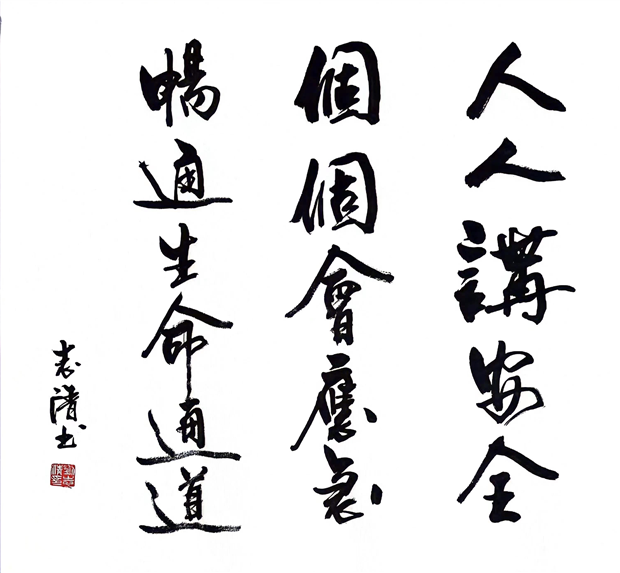 人人講安全
個個會應急
暢通生命通道
志清书